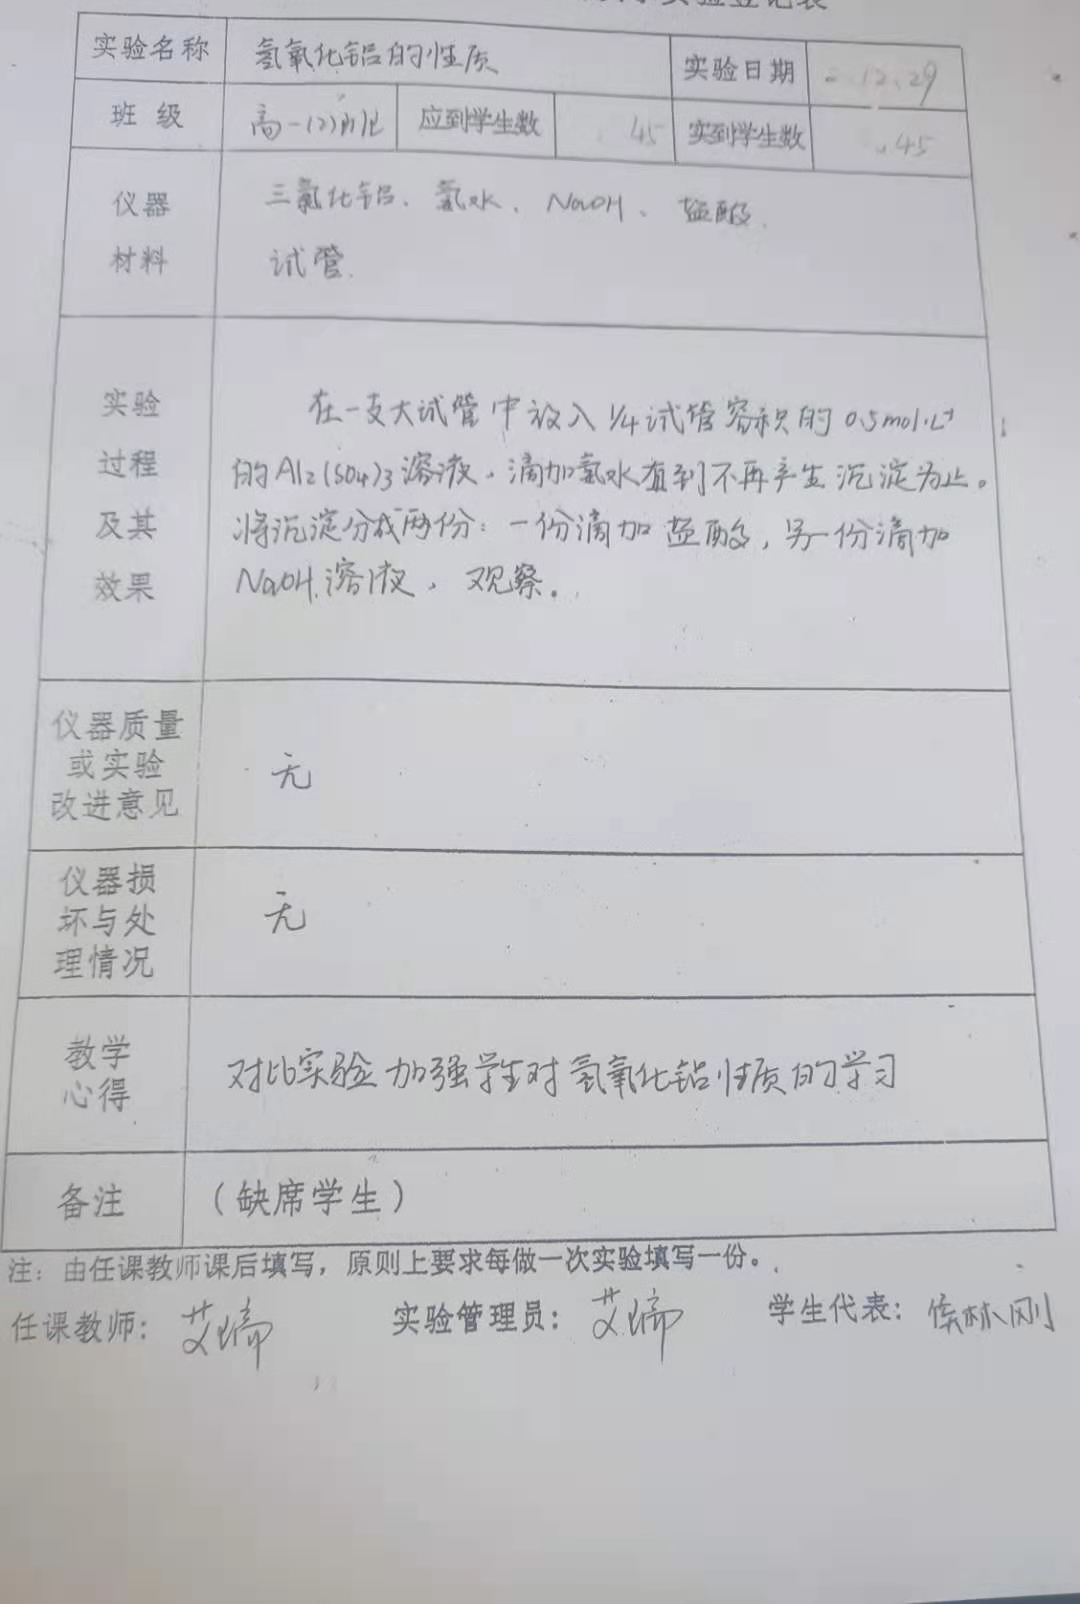 实验登记表
实验名称 氢氧化铝的性质 实验日期 12.29
班级 高一(2)班 应到学生数 45 实到学生数 45
仪器 三氯化铝、氨水、NaOH、盐酸
材料 试管.
实验 在一支大试管中放入1/4试管容积的0.5mol·L⁻¹
过程 的Al₂(SO₄)₃溶液，滴加氨水直到不再产生沉淀为止。
及其 将沉淀分成两份：一份滴加盐酸，另一份滴加
效果 NaOH溶液，观察。
仪器质量
或实验 无
改进意见
仪器损
坏与处 无
理情况
教学 对比实验加强学生对氢氧化铝性质的学习
心得
备注 （缺席学生）
注：由任课教师课后填写，原则上要求每做一次实验填写一份。
任课教师：艾 实验管理员：艾 学生代表：侯林刚